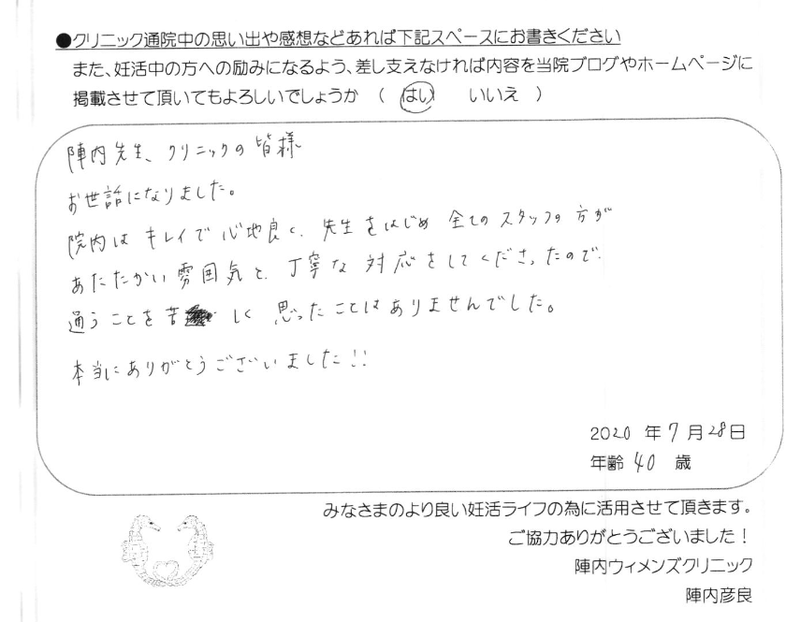 ●クリニック通院中の思い出や感想などあれば下記スペースにお書きください
また、妊活中の方への励みになるよう、差し支えなければ内容を当院ブログやホームページに
掲載させて頂いてもよろしいでしょうか ( はい いいえ )
陣内先生、クリニックの皆様
お世話になりました。
院内はキレイで心地良く、先生をはじめ全てのスタッフの方が
あたたかい雰囲気と、丁寧な対応をしてくださったので、
通うことを苦しく思ったことはありませんでした。
本当にありがとうございました!!
2020 年 7 月 28 日
年齢 40 歳
みなさまのより良い妊活ライフの為に活用させて頂きます。
ご協力ありがとうございました!
陣内ウィメンズクリニック
陣内彦良